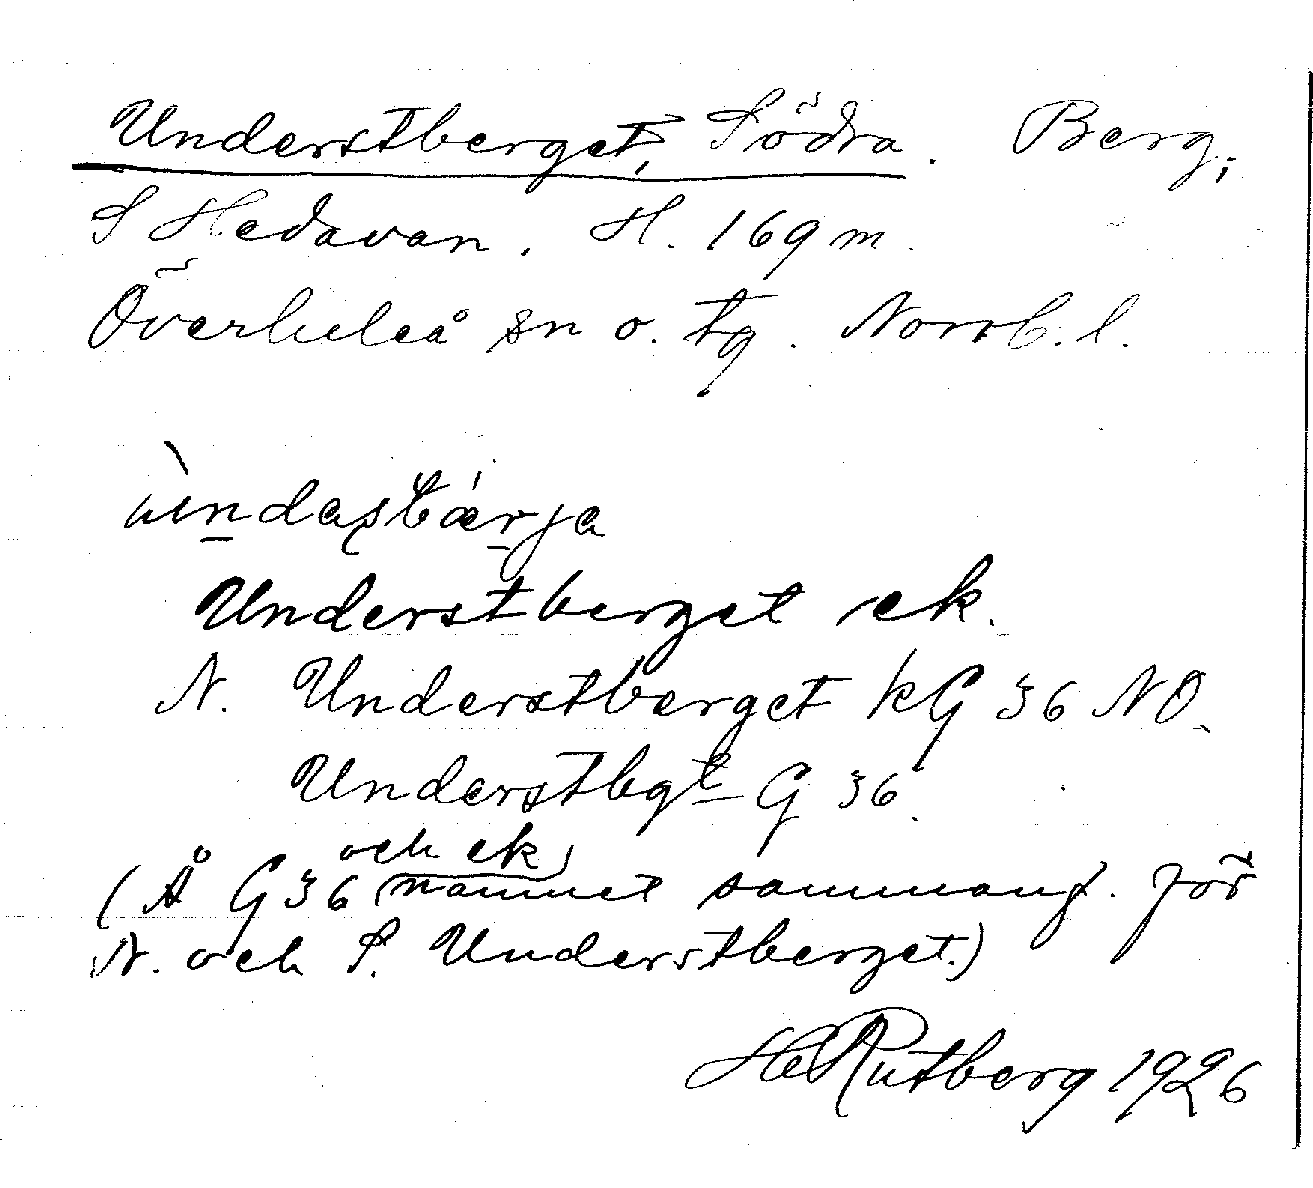 Understberget, Södra. Berg;
S Hedavan. H. 169 m.
Överluleå sn o. tg. Norrb. l.
Understberget ek.
N. Understberget kG 36 NO.
Understbgt G 36.
och ek
(Å G36 namnet sammanf. för
N. och S. Understberget.)
HeRutberg 1926